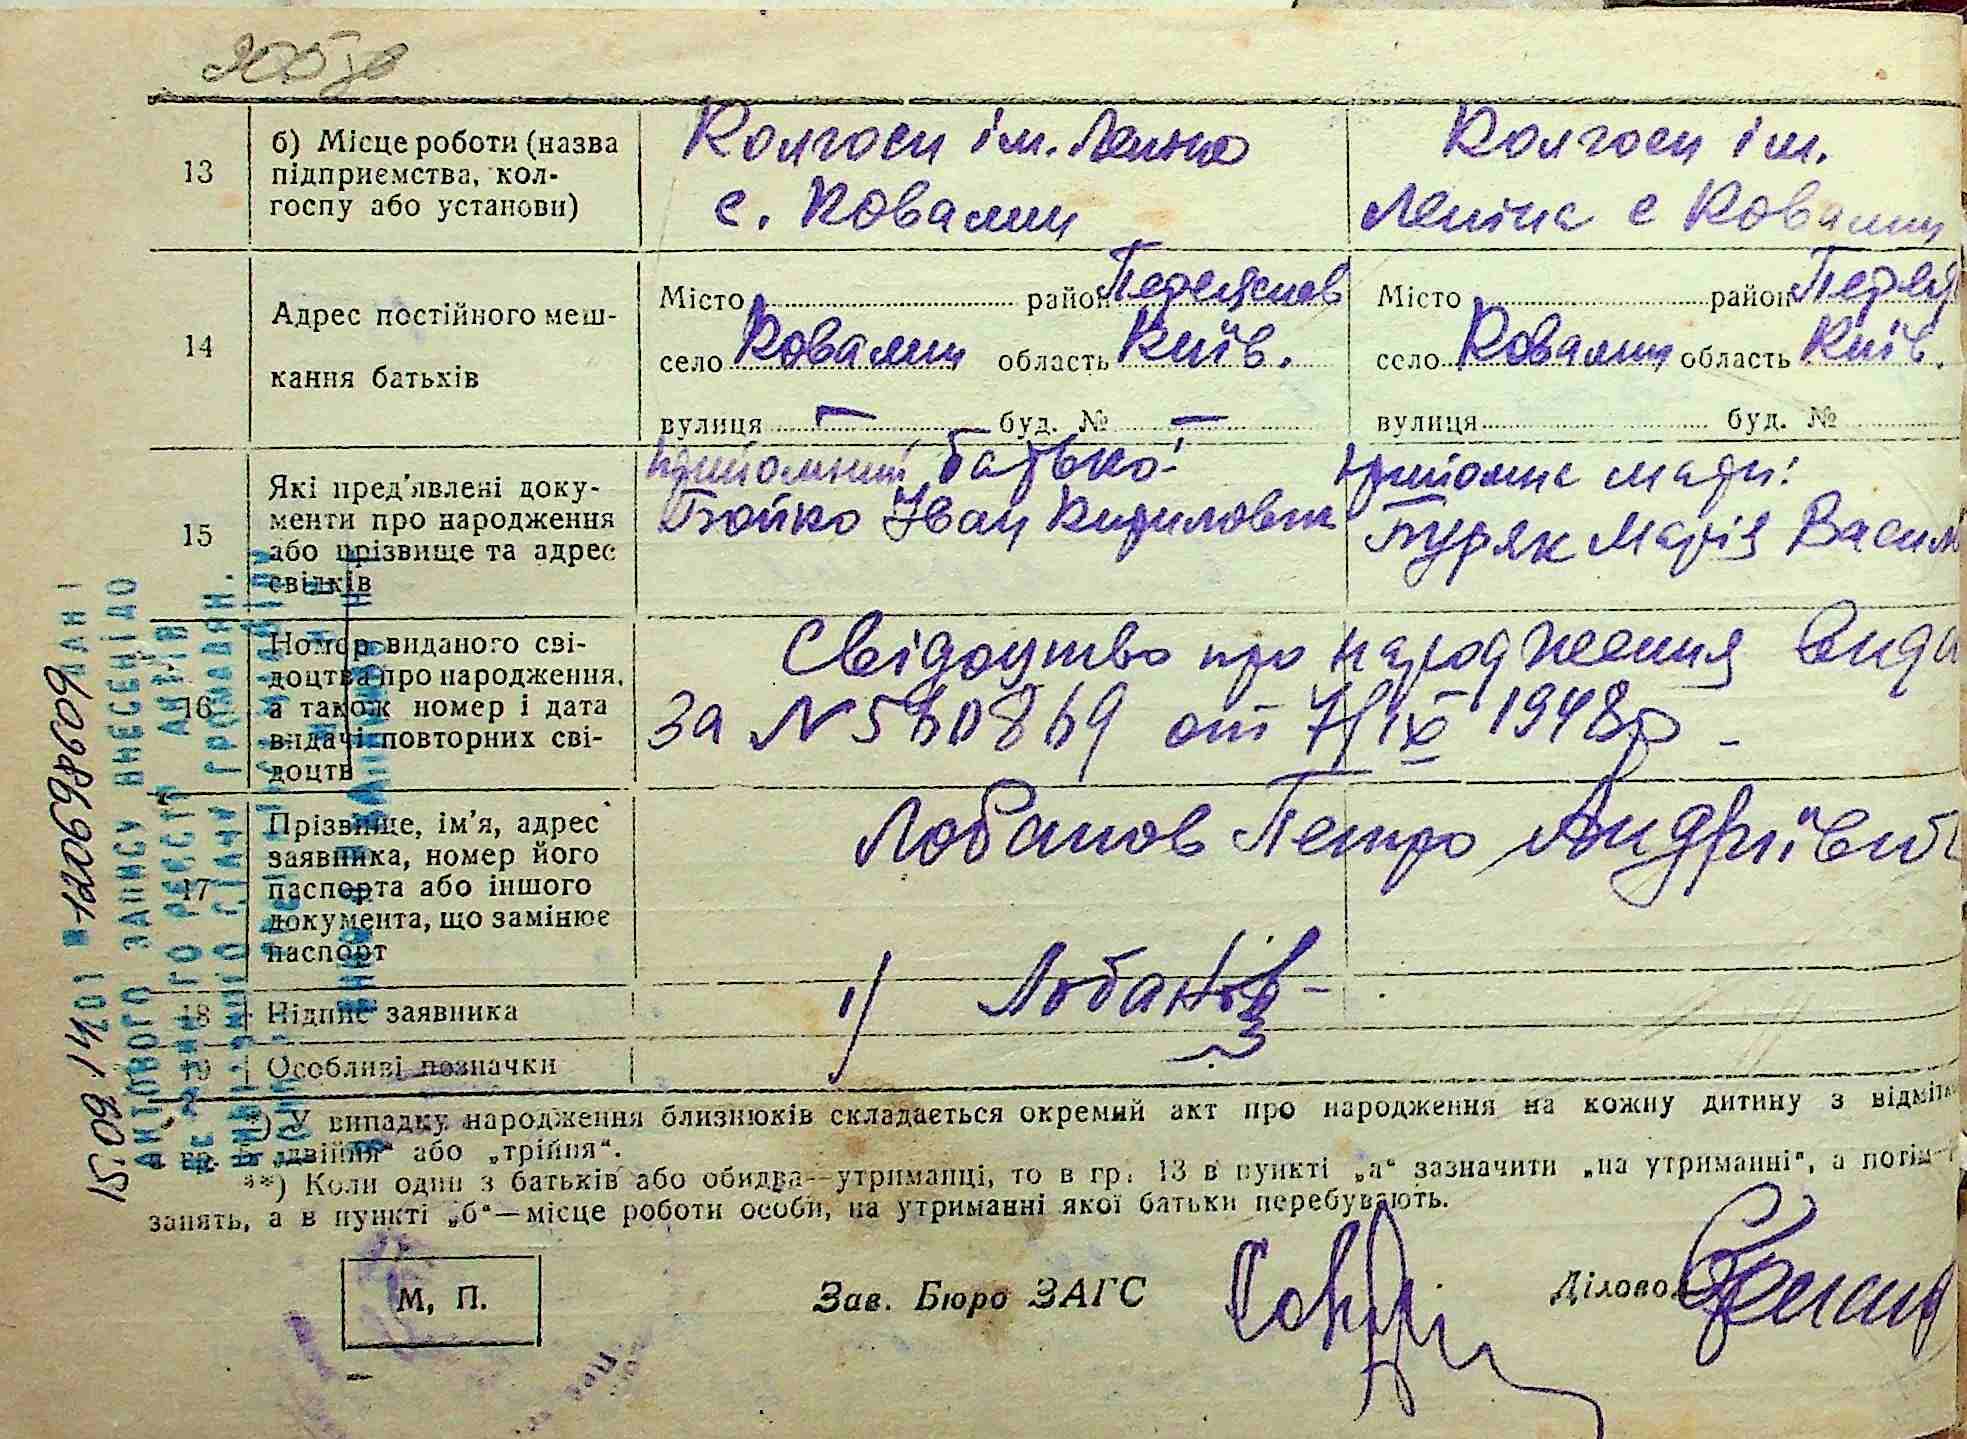 13
б) Місце роботи (назва
підприємства, кол-
госпу або установи)
Колгосп ім. Леніна
с. Ковалин
Колгосп ім.
Леніна с Ковалин
14
Адрес постійного меш-
кання батьків
Місто район Переяслов
село Ковалин область Київ.
вулиця — буд. № —
Місто район Перея
село Ковалин область Київ.
вулиця буд. №
15
Які пред'явлені доку-
менти про народження
або прізвище та адрес
свідків
прийомний батько:
Бойко Іван Кирилович
прийомна мати:
Буряк Марія Васил
16
Номер виданого сві-
доцтва про народження,
а також номер і дата
видачі повторних сві-
доцтв
Свідоцтво про народження вида
за N 560869 от 7/IX 1948р -
17
Прізвище, ім'я, адрес
заявника, номер його
паспорта або іншого
документа, що замінює
паспорт
Лобанов Петро Андрійович
18
Підпис заявника
1) Лобанов
19
Особливі позначки
*) У випадку народження близнюків складається окремий акт про народження на кожну дитину з відмітк
в гр. „двійня“ або „трійня“.
**) Коли один з батьків або обидва—утриманці, то в гр. 13 в пункті „а“ зазначити „на утриманні“, а потім
занять, а в пункті „б“—місце роботи особи, на утриманні якої батьки перебувають.
М. П.
Зав. Бюро ЗАГС
Діловод
15.09.14 201 в 120698609 ДАНІ
АКТОВОГО ЗАПИСУ ВНЕСЕНІ ДО
ДЕРЖАВНОГО РЕЄСТРУ АКТІВ
ЦИВІЛЬНОГО СТАНУ ГРОМАДЯН.